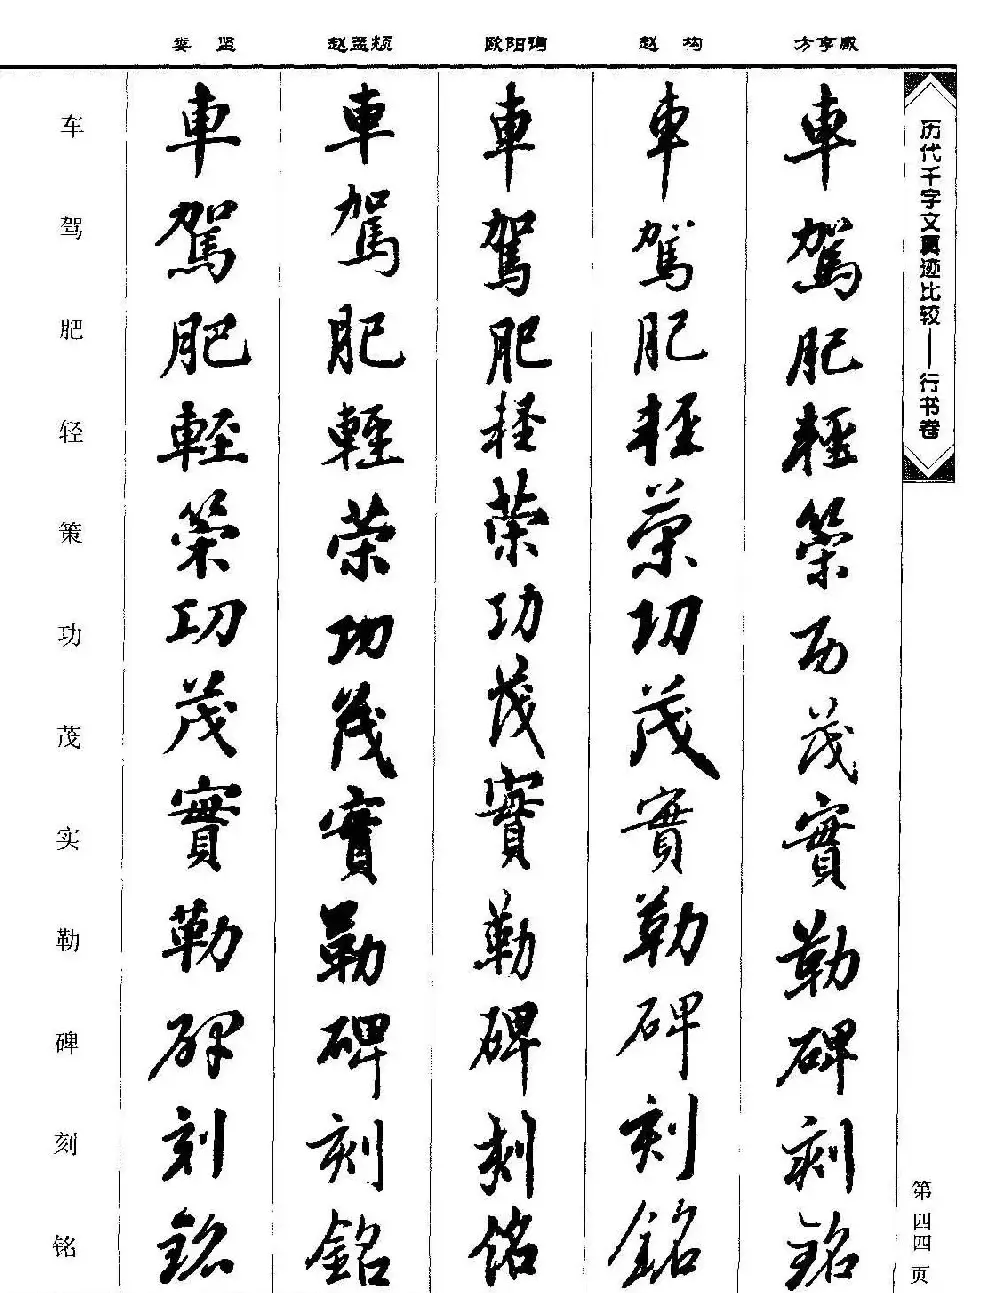 娄坚 赵孟頫 欧阳询 赵构 方亨咸
历代千字文真迹比较——行书卷
車駕肥輕策功茂實勒碑刻銘
車駕肥輕策功茂實勒碑刻銘
車駕肥輕策功茂實勒碑刻銘
車駕肥輕策功茂實勒碑刻銘
車駕肥輕策功茂實勒碑刻銘
车驾肥轻策功茂实勒碑刻铭
第四四页